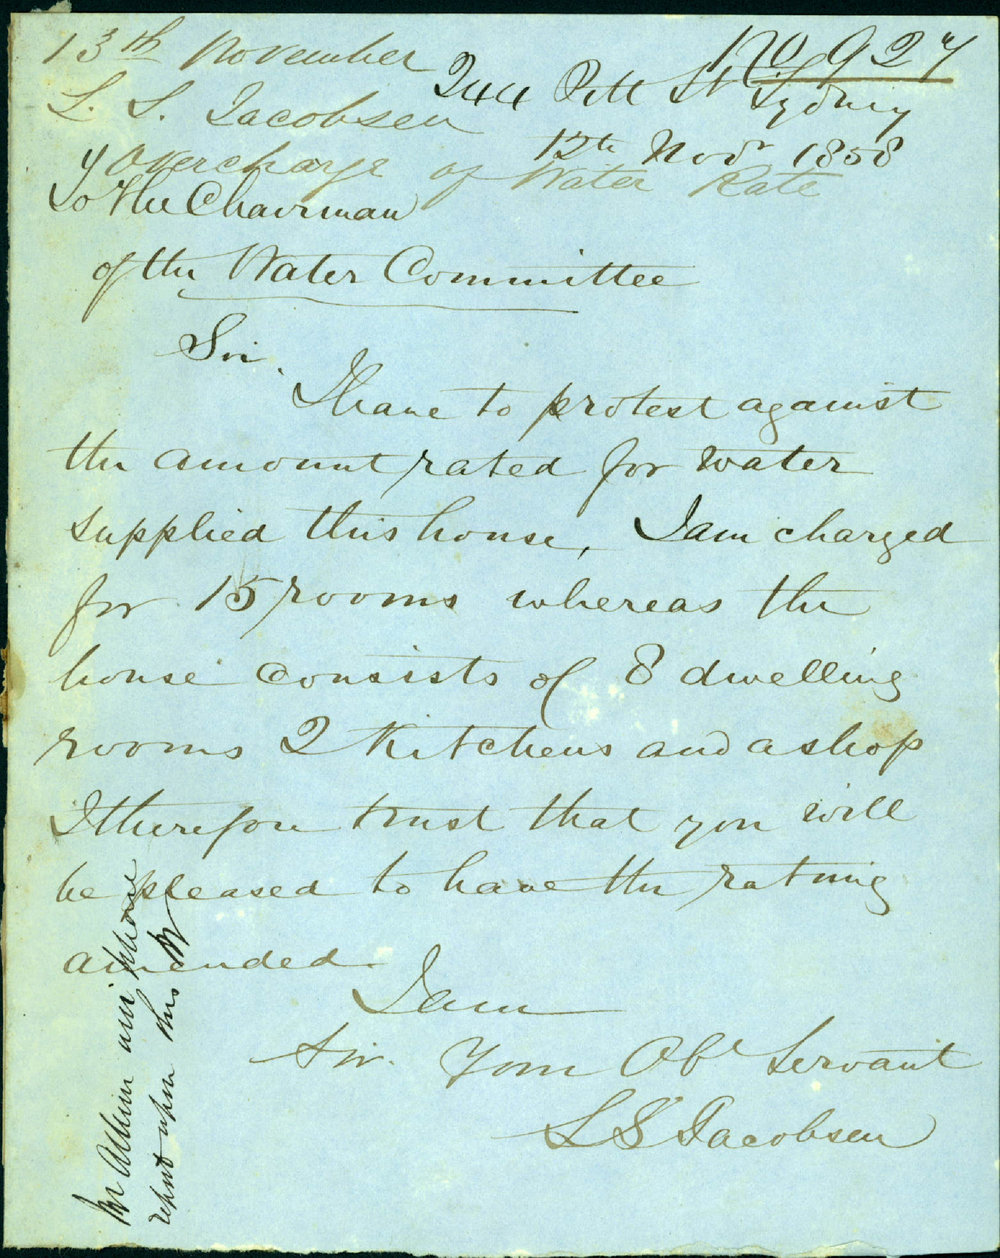 13th November
No 927
L. S. Jacobsen
244 Pitt St Sydney
12th Novr 1858
Overcharge of Water Rate
To the Chairman
of the Water Committee
Sir,
I have to protest against
the amount rated for water
supplied this house, I am charged
for 15 rooms whereas the
house consists of 8 dwelling
rooms 2 Kitchens and a shop
I therefore trust that you will
be pleased to have the ratning
amended.
I am
Sir. Your Obt Servant
L S Jacobsen
Mr will please
report upon this